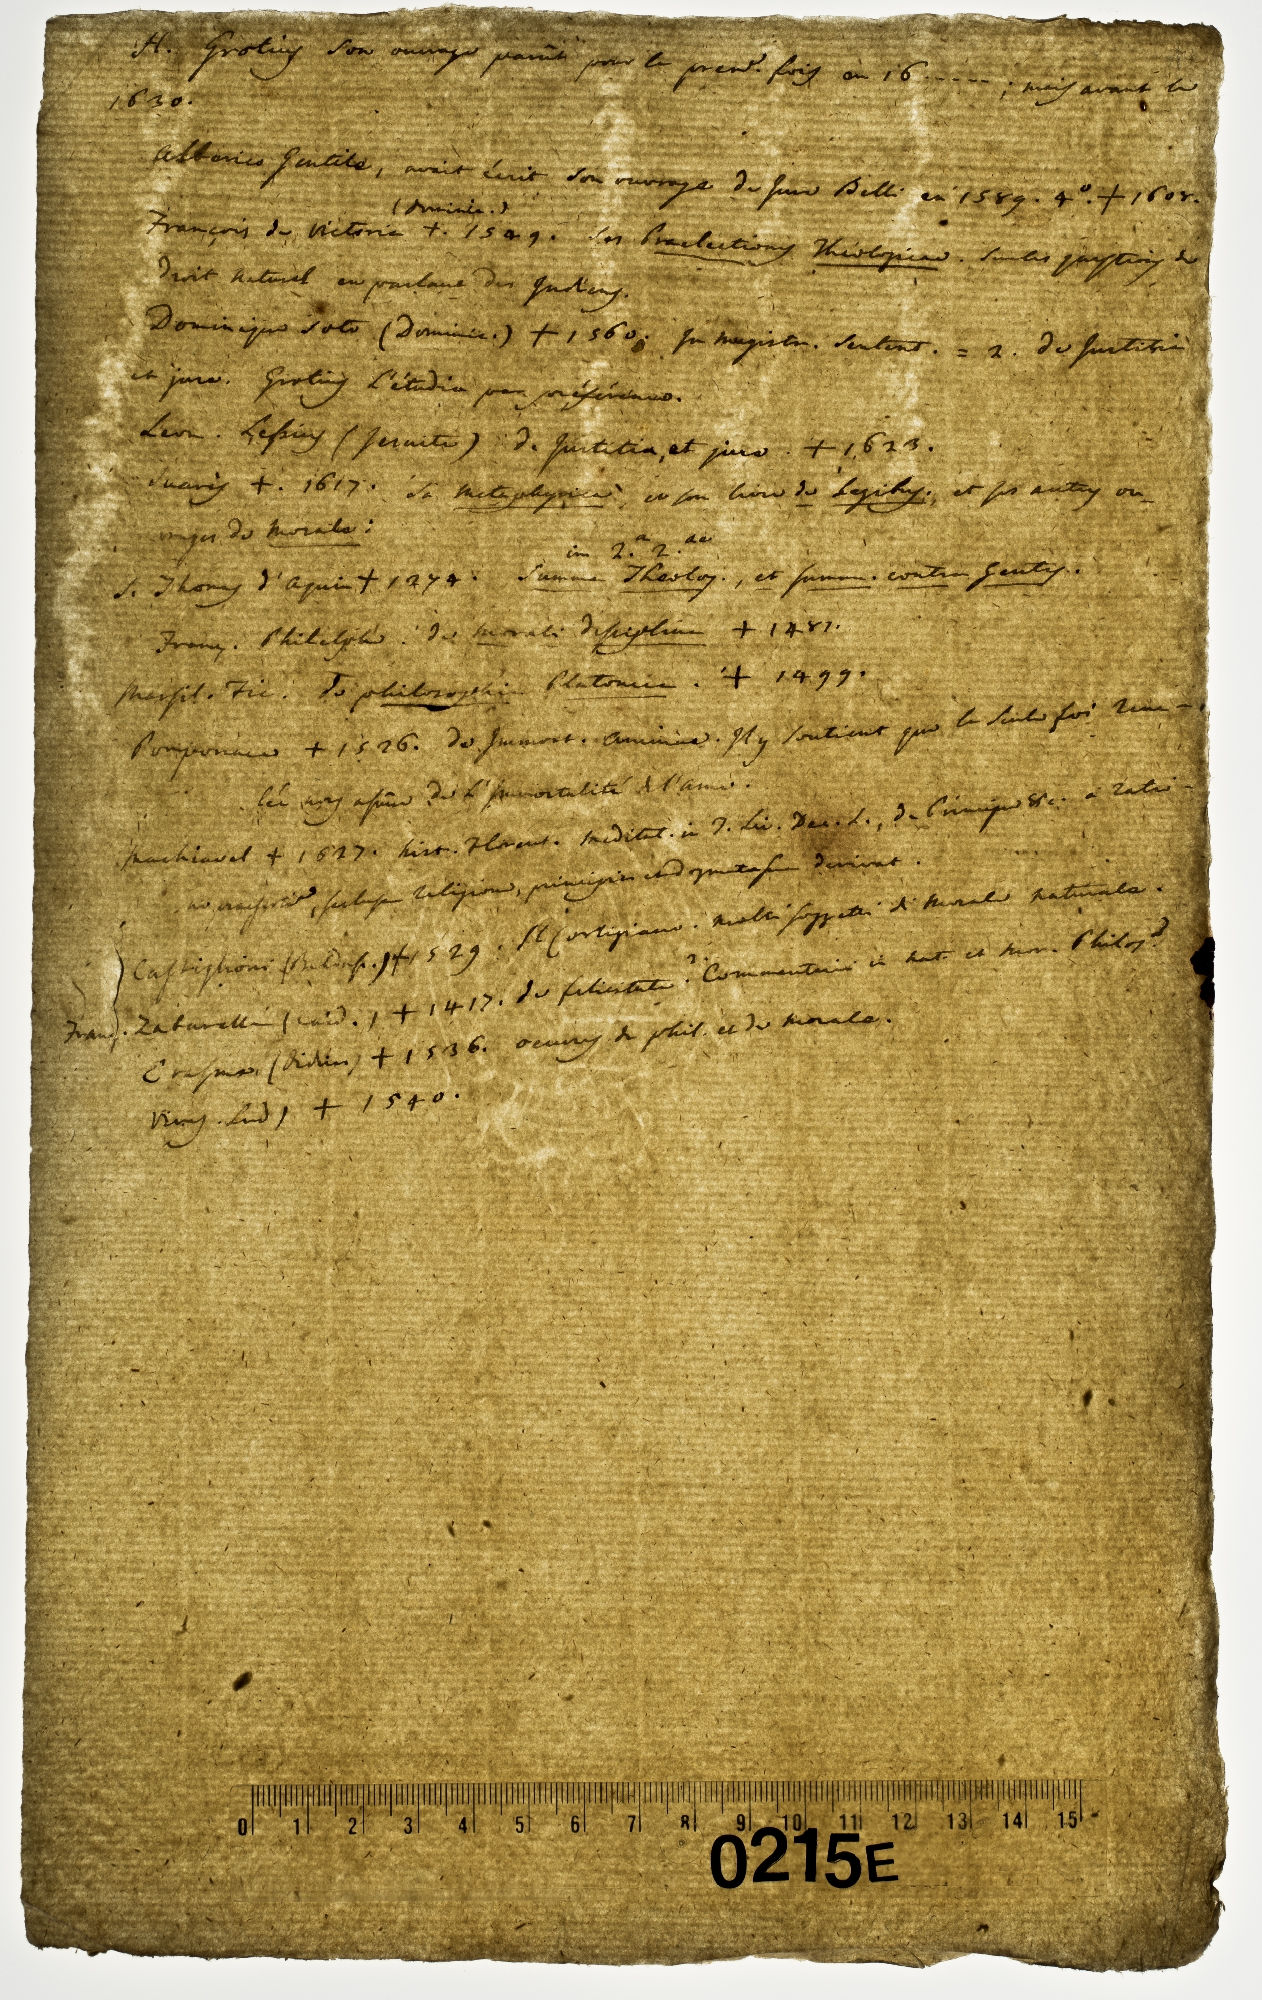 H. Grotius son ouvrage parût pour la prem.e fois en 16 ----- ; mais avant le
1630.
Alberico Gentile, avait écrit son ouvrage de Jure Belli en 1589. 4º. + 1608.
(Dominic.)
François de Victoria +. 1549. Ses Praelectiones Theologicae. Sur les questions de
droit naturel en parlant des Indiens.
Dominique Soto (Dominic.) + 1560. In magistr. Sentent. = 2. de Justitia
et jure. Grotius l'étudia par préférence.
Leon. Lessius (Jesuite) de Justitia, et jure. + 1623.
Suares +. 1617. Sa Metaphysica, et son livre de Legibus. et ses autres ou_
vrages de Morale:
in 2.a 2.ae
S. Thomas d'Aquin + 1274. Summa Theolog., et summ. contra Gentes.
Franç. Philelphe. de morali disciplina + 1481.
Marsil. Fic. De philosophia Platonica. + 1499.
Pomponace + 1526. De Immort. animae. Il y soutient que la seule foi
nous assure de l'Immortalité de l'ame.
Machiavel + 1527. Hist. Florent. Meditat. in T. Liv. Dec. L., de Principe &c. a
religione, principiis derivat.
Castiglioni + 1529. Il Cortigiano. molti soggetti di Morale naturale.
Franç. Zabarella (Card.) + 1417. de felicitate. Commentarii in nat. et mor. Philos.
Erasme. + 1536. oeuvres de phil. et de Morale.
Vives Lud) + 1540.
0 1 2 3 4 5 6 7 8 9 10 11 12 13 14 15
0215E